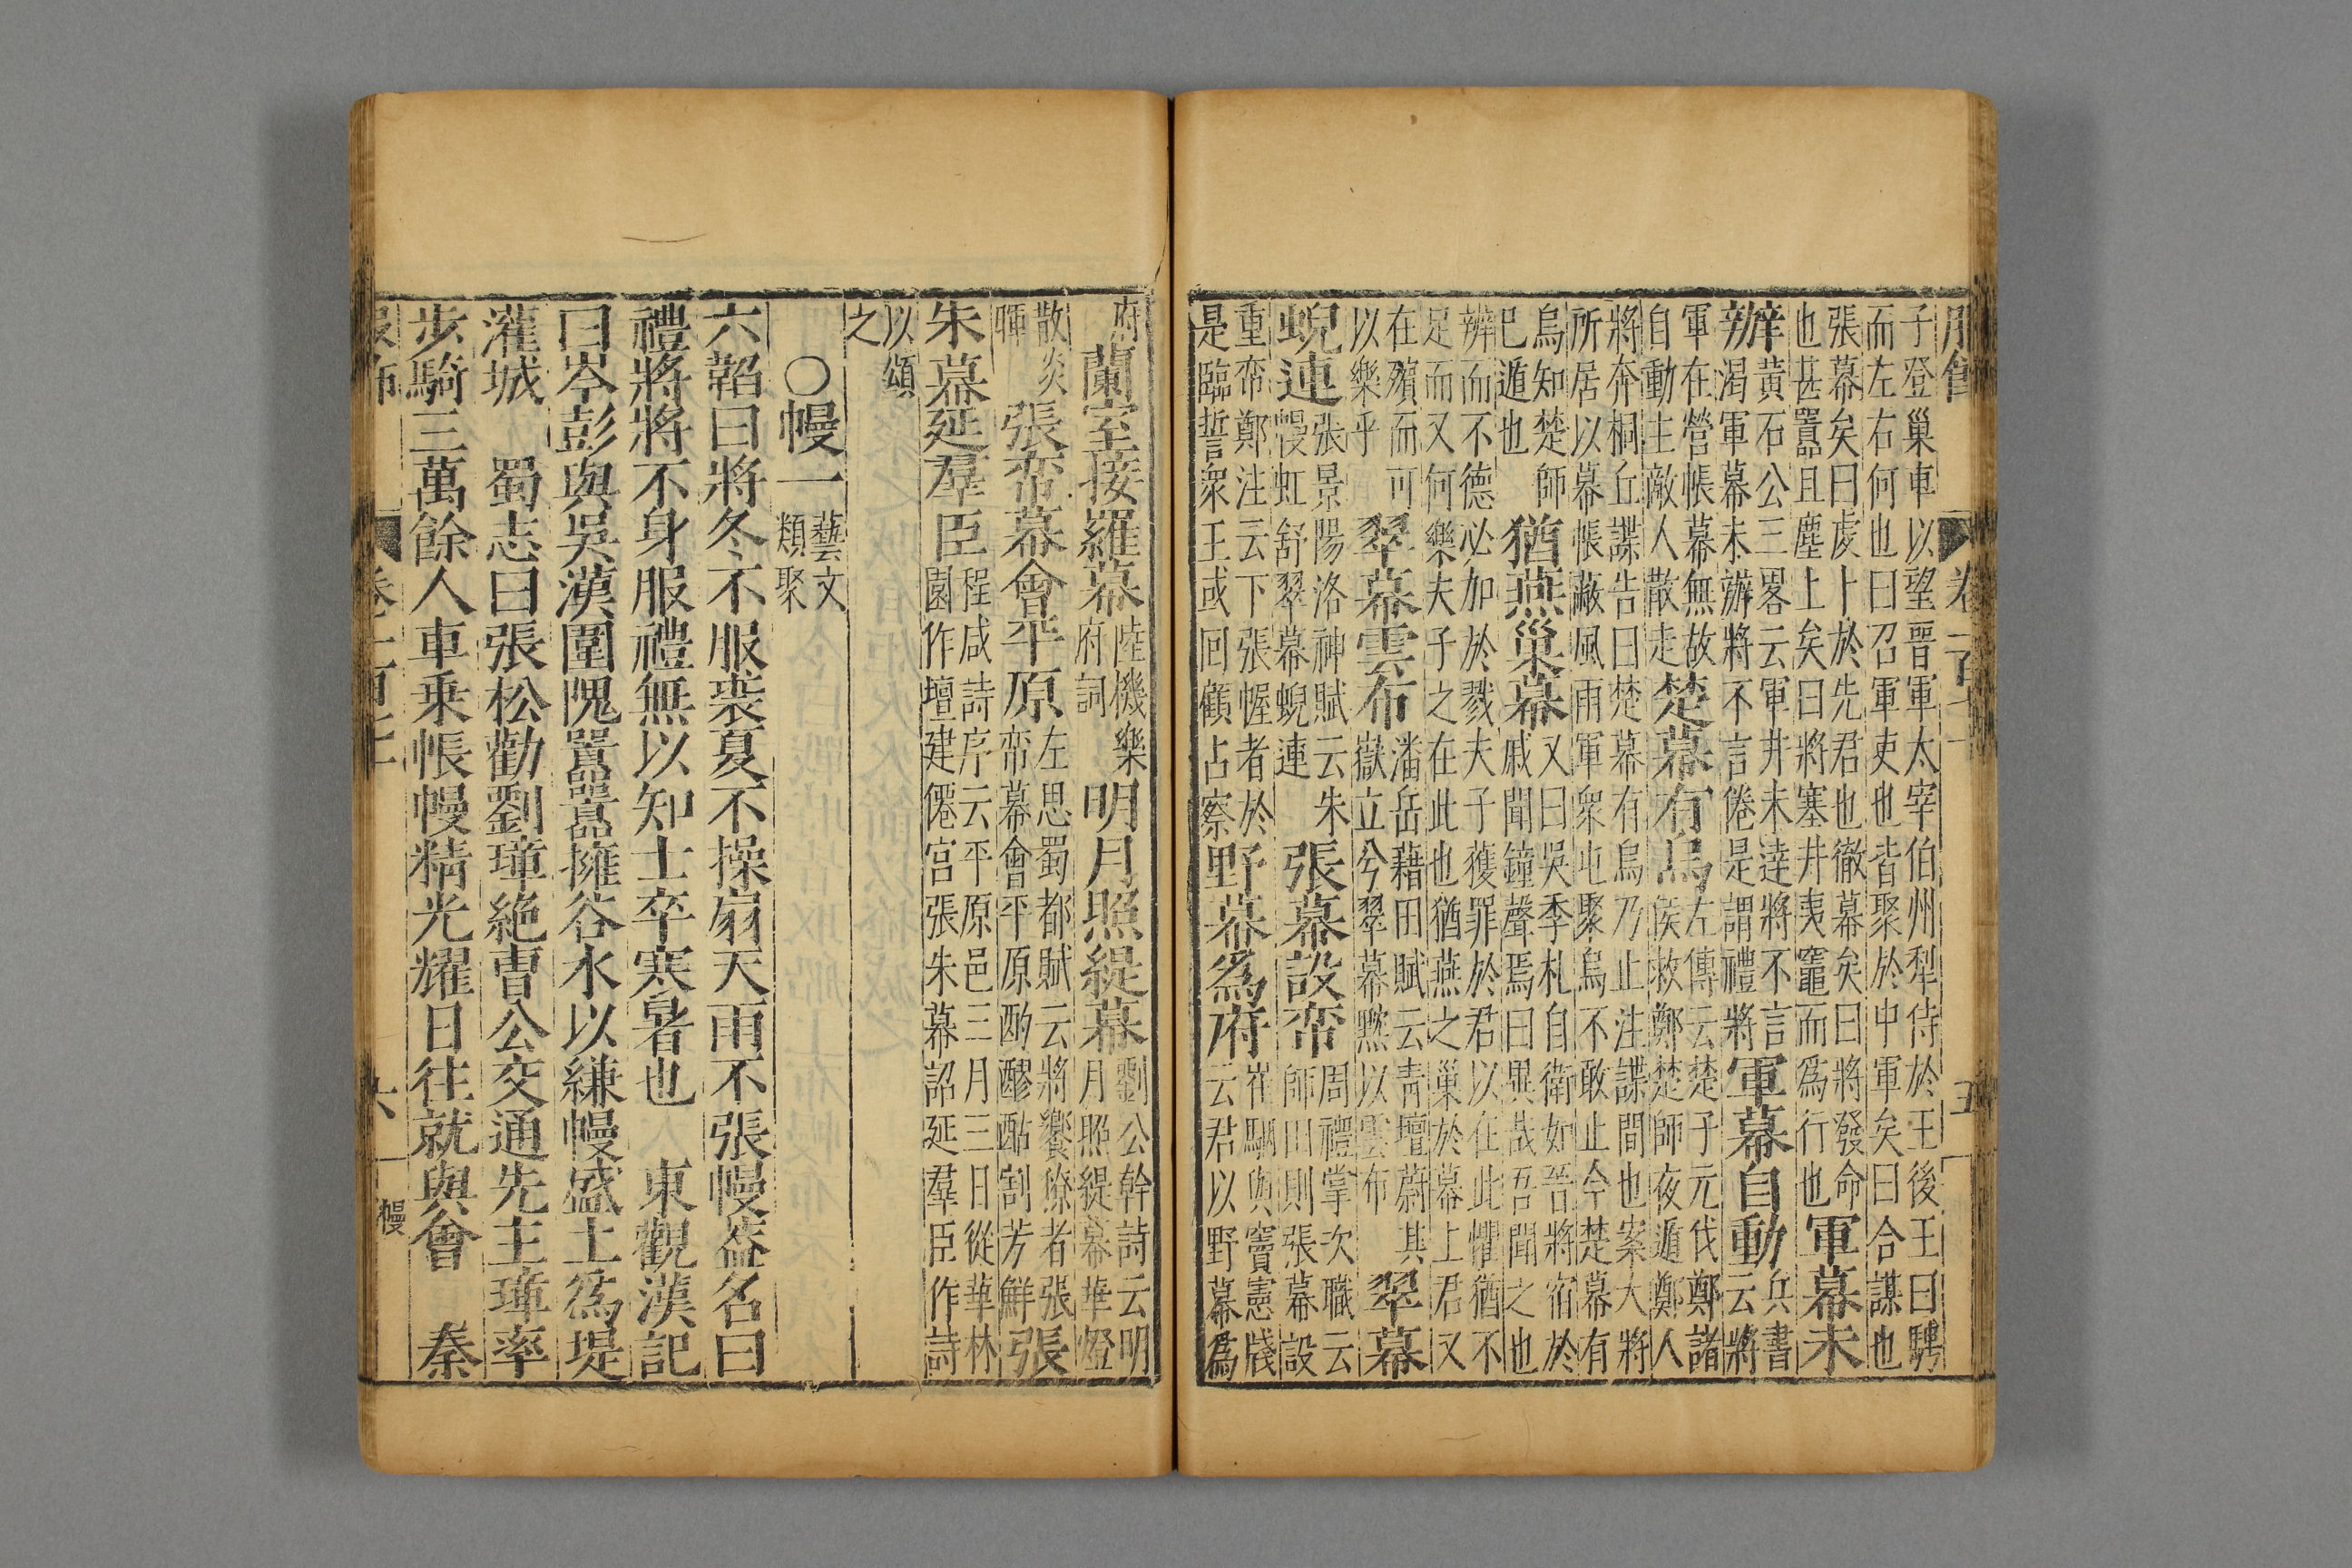 服飾 卷 五
子登巢車以望晉軍太宰伯州犁侍於王後王曰騁
而左右何也曰召軍吏也皆聚於中軍矣曰合謀也
張幕矣曰虔卜於先君也徹幕矣曰將發命
也甚囂且塵上矣曰將塞井夷竈而爲行也
軍幕未
辦
黃石公三畧云軍井未達將不言
渴軍幕未辦將不言倦是謂禮將
軍幕自動
兵書
云將
軍在營帳幕無故
自動主敵人散走
楚幕有烏
左傳云楚子元伐鄭諸
侯救鄭楚師夜遁鄭人
將奔桐丘諜告曰楚幕有烏乃止注諜間也案大將
所居以幕帳蔽風雨軍衆屯聚烏不敢止今楚幕有
烏知楚師
巳遁也
猶燕巢幕
又曰吳季札自衛如晉將宿於
戚聞鐘聲焉曰異哉吾聞之也
辨而不德必加於戮夫子獲罪於君以在此懼猶不
足而又何樂夫子之在此也猶燕之巢於幕上君又
在殯而可
以樂乎
翠幕雲布
潘岳藉田賦云青壇蔚其
嶽立兮翠幕黙以雲布
翠幕
蜺連
張景陽洛神賦云朱
幔虹舒翠幕蜺連
張幕設帟
周禮掌次職云
師田則張幕設
重帟鄭注云下張幄者於
是臨誓衆王或回顧占察
野幕爲府
崔駰與竇憲牋
云君以野幕爲
府
蘭室接羅幕
陸機樂
府詞
明月照緹幕
劉公幹詩云明
月照緹幕華燈
散炎
暉
張帟幕會平原
左思蜀都賦云將饗獠者張
帟幕會平原酌醪酤割芳鮮
張
朱幕延羣臣
程咸詩序云平原邑三月三日從華林
園作壇建僊宮張朱幕詔延羣臣作詩
以頌
之
○幔一
藝文
類聚
六韜曰將冬不服裘夏不操扇天雨不張幔葢名曰
禮將將不身服禮無以知士卒寒暑也 東觀漢記
曰岑彭與吳漢圍隗囂囂擁谷水以縑幔盛土爲堤
灌城 蜀志曰張松勸劉璋絶曹公交通先主璋率
步騎三萬餘人車乗帳幔精光耀日往就與會 秦
服飾 卷 六 幔